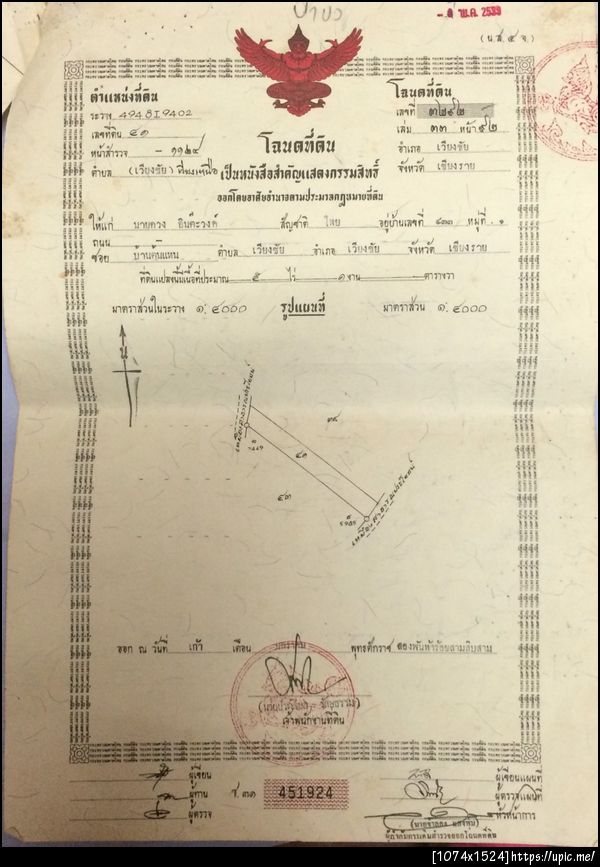 - ๑ พ.ค. 2539
(น.ส.๔ จ.)
ตำแหน่งที่ดิน
ระวาง 4948 I 9402
เลขที่ดิน ๔๑
หน้าสำรวจ ๑๑๒๙
ตำบล (เวียงชัย)
โฉนดที่ดิน
เลขที่ ๓๒๙๒
เล่ม ๓๓ หน้า ๙๒
อำเภอ เวียงชัย
จังหวัด เชียงราย
โฉนดที่ดิน
เป็นหนังสือสำคัญแสดงกรรมสิทธิ์
ออกโดยอาศัยอำนาจตามประมวลกฎหมายที่ดิน
ให้แก่ นายดวง อินต๊ะวงค์ สัญชาติ ไทย อยู่บ้านเลขที่ หมู่ที่ ๑
ถนน
ซอย ตำบล เวียงชัย อำเภอ เวียงชัย จังหวัด เชียงราย
ที่ดินแปลงนี้มีเนื้อที่ประมาณ ๕ ไร่ ๑ งาน ตารางวา
มาตราส่วนในระวาง ๑:๔๐๐๐ รูปแผนที่ มาตราส่วน ๑:๔๐๐๐
น
เหมืองสาธารณประโยชน์
๓๙
๔๑
๔๓
เหมืองสาธารณประโยชน์
ออก ณ วันที่ เก้า เดือน มกราคม พุทธศักราช สองพันห้าร้อยสามสิบสาม
เจ้าพนักงานที่ดิน
ผู้เขียน
ผู้ทาน
ผู้ตรวจ
ช.๓๑ 451924
ผู้เขียนแผนที่
ผู้ตรวจแผนที่
หัวหน้าการ
ผู้กำกับการเดินสำรวจออกโฉนดที่ดิน
[1074x1524]https://upic.me/